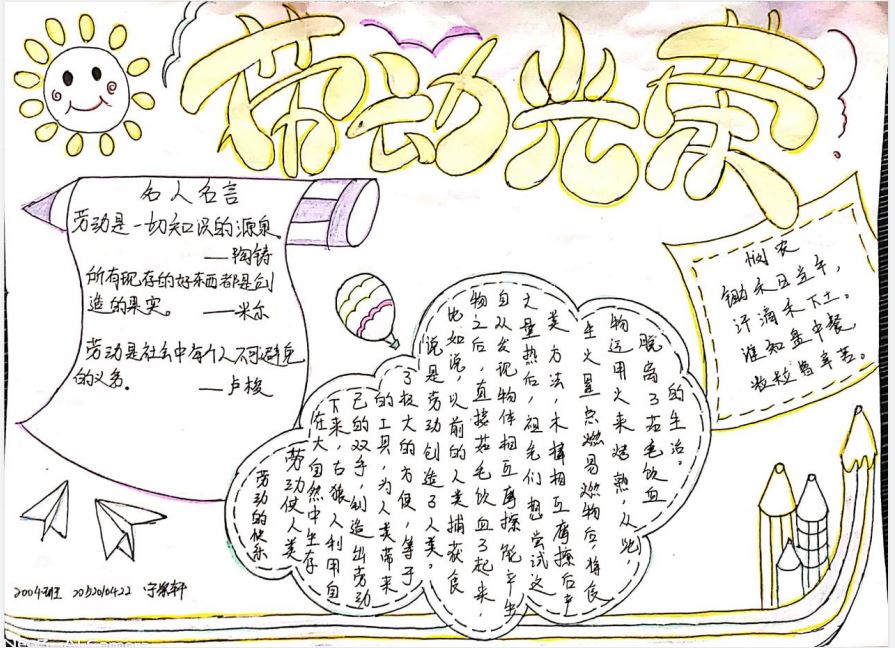 劳动光荣
名人名言
劳动是一切知识的源泉。
—陶铸
所有现存的好东西都是创
造的果实。 —米尔
劳动是社会中每个人不可避免
的义务。 —卢梭
悯农
锄禾日当午，
汗滴禾下土。
谁知盘中餐，
粒粒皆辛苦。
劳动的快乐
劳动使人类
在大自然中生存
下来，古猿人利用自
己的双手，创造出劳动
的工具，为人类带来
了极大的方便，等于
说是劳动创造了人类。
比如说，以前的人类捕获食
物之后，直接茹毛饮血了起来，
自从发现物体相互摩擦能产生
大量热后，祖先们想尝试这
类方法，木摔相互摩擦后产
生火星点燃易燃物后，将食
物运用火来烤熟，从此，
脱离了茹毛饮血
的生活。
2004班